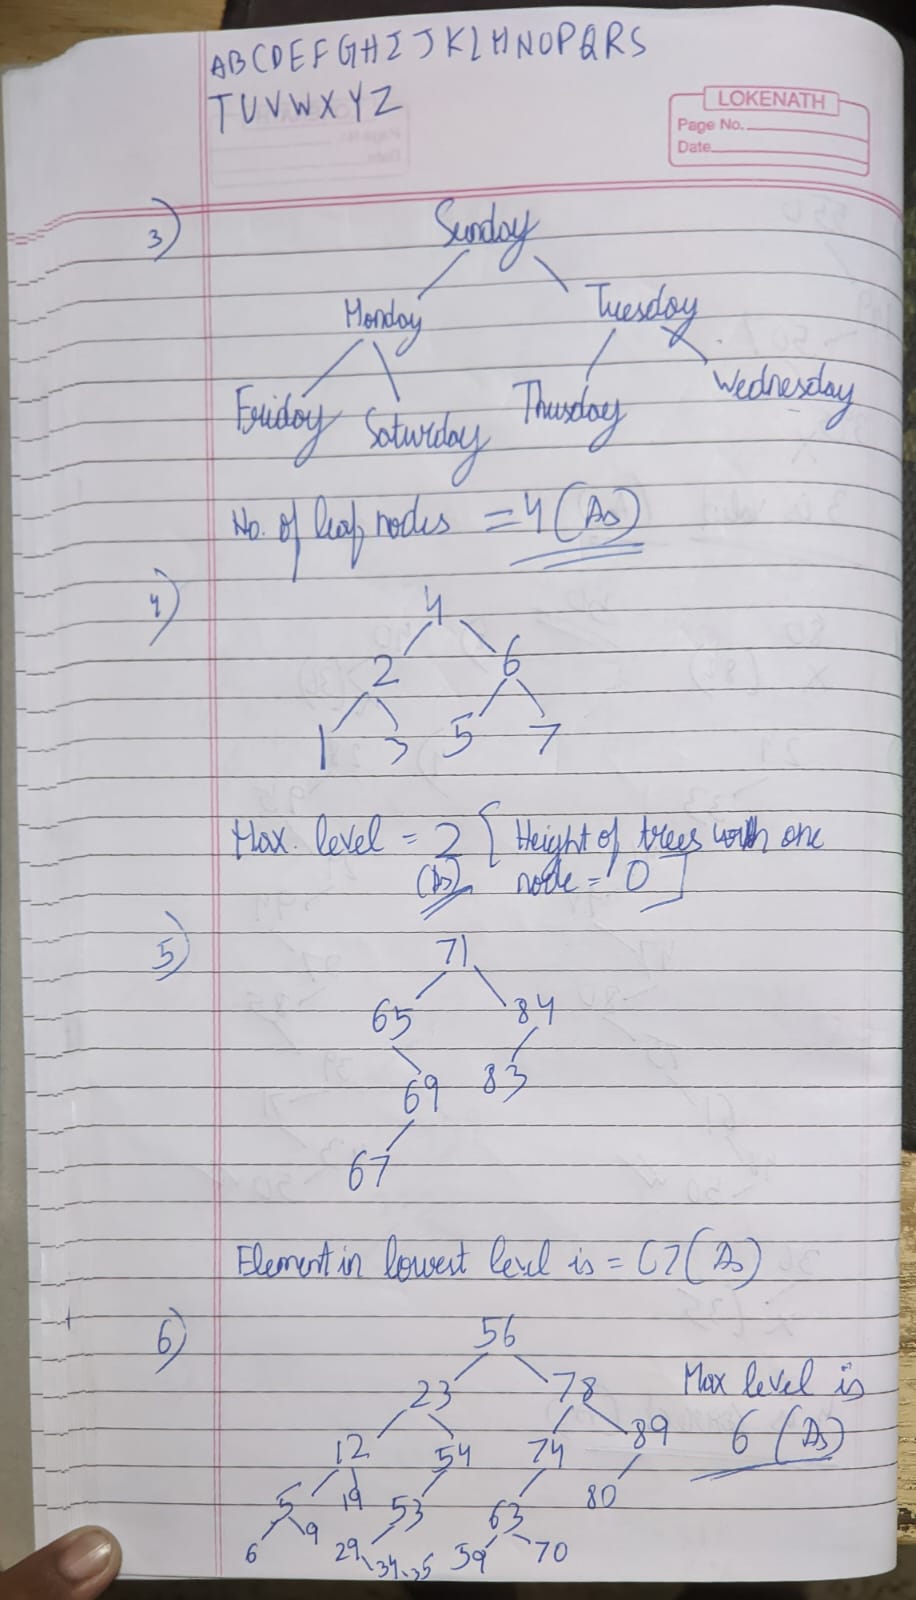 ABCDEFGHIJKLMNOPQRS
TUVWXYZ
LOKENATH
Page No.
Date
3)
Sunday
Monday Tuesday
Friday Saturday Thusday Wednesday
No. of leaf nodes = 4 (As)
4)
4
2 6
1 3 5 7
Max. level = 2 [ Height of trees with one
(As) node = 0 ]
5)
71
65 84
69 83
67
Element in lowest level is = 67 (As)
6)
56
23 78 Max level is
12 54 74 89 6 (As)
5 19 53 63 80
6 9 29 34 35 59 70